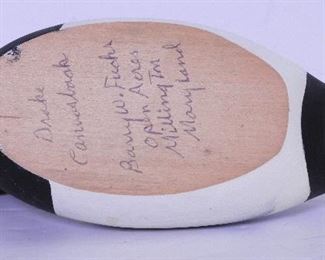 Drake
Canvasback
Barry W. Fuchs
Open Acres
Millington
Maryland